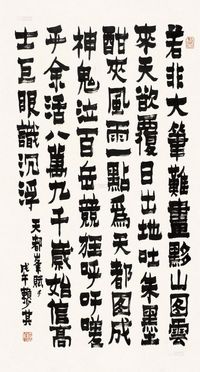 若非大筆難畫黟山图雲
來天欲覆日出地吐朱墨
酣夾風雨一點為天都图成
神鬼泣百岳競狂呼吁嗟
乎余活八萬九千歲始信高
士巨眼識沉浮
天都峯賦
戊午